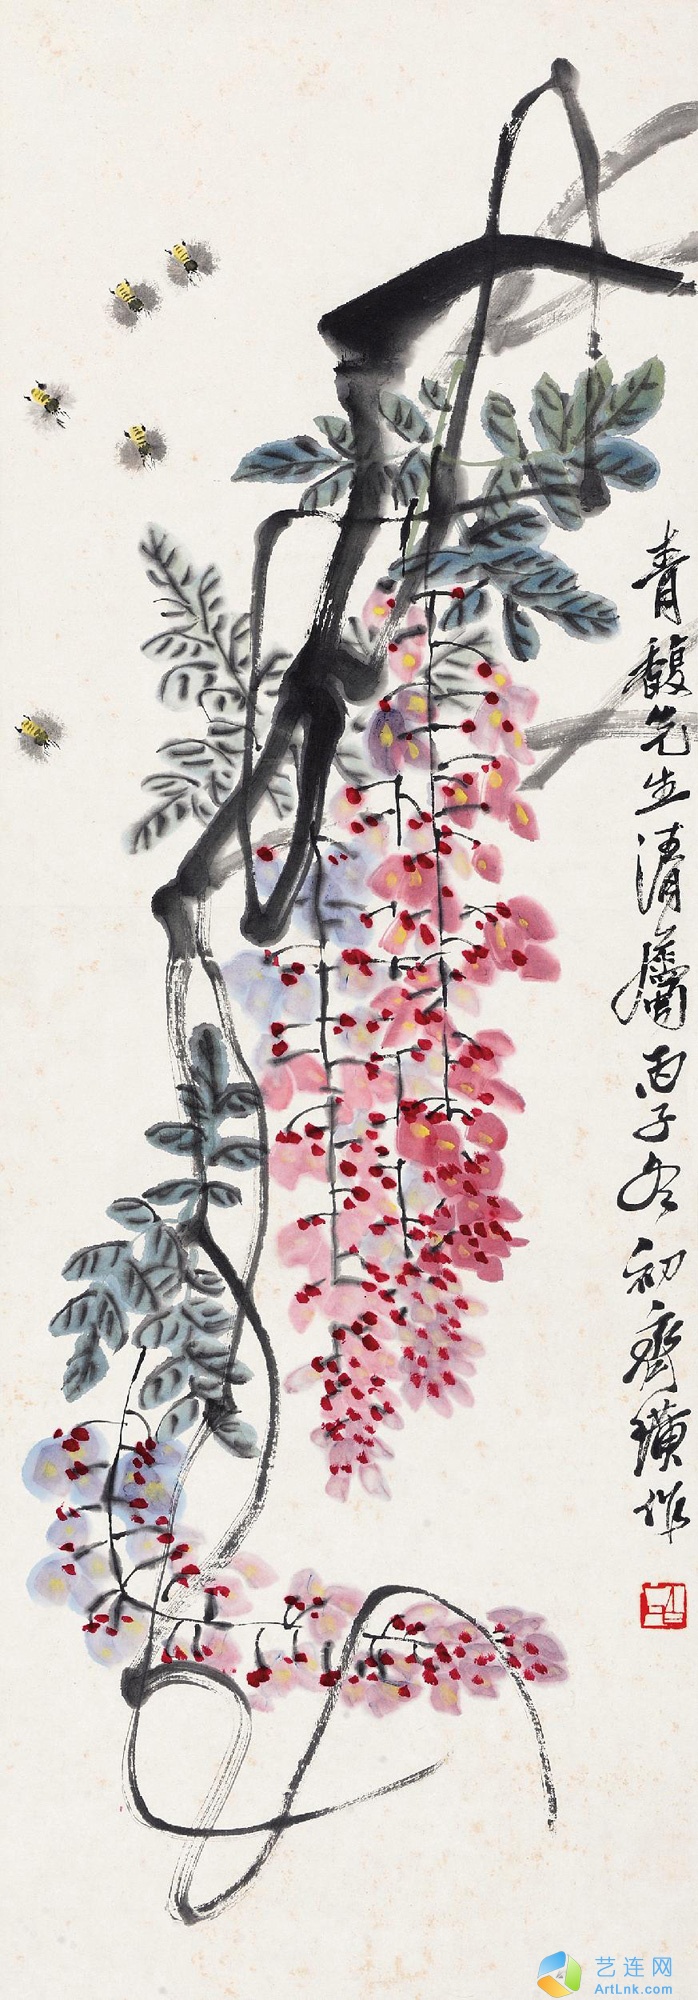 青馥先生清屬丙子冬初齊璜作
艺连网
ArtLnk.com